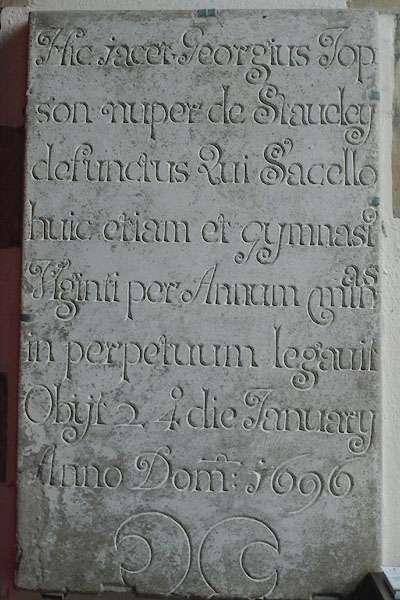 Hic jacet Georgius Top
son nuper de Staveley
defunctus Qui Sacello
huic etiam et gymnasi
Viginti per Annum minas
in perpetuum legavit
Obijt 24° die January
Anno Dom: 1696